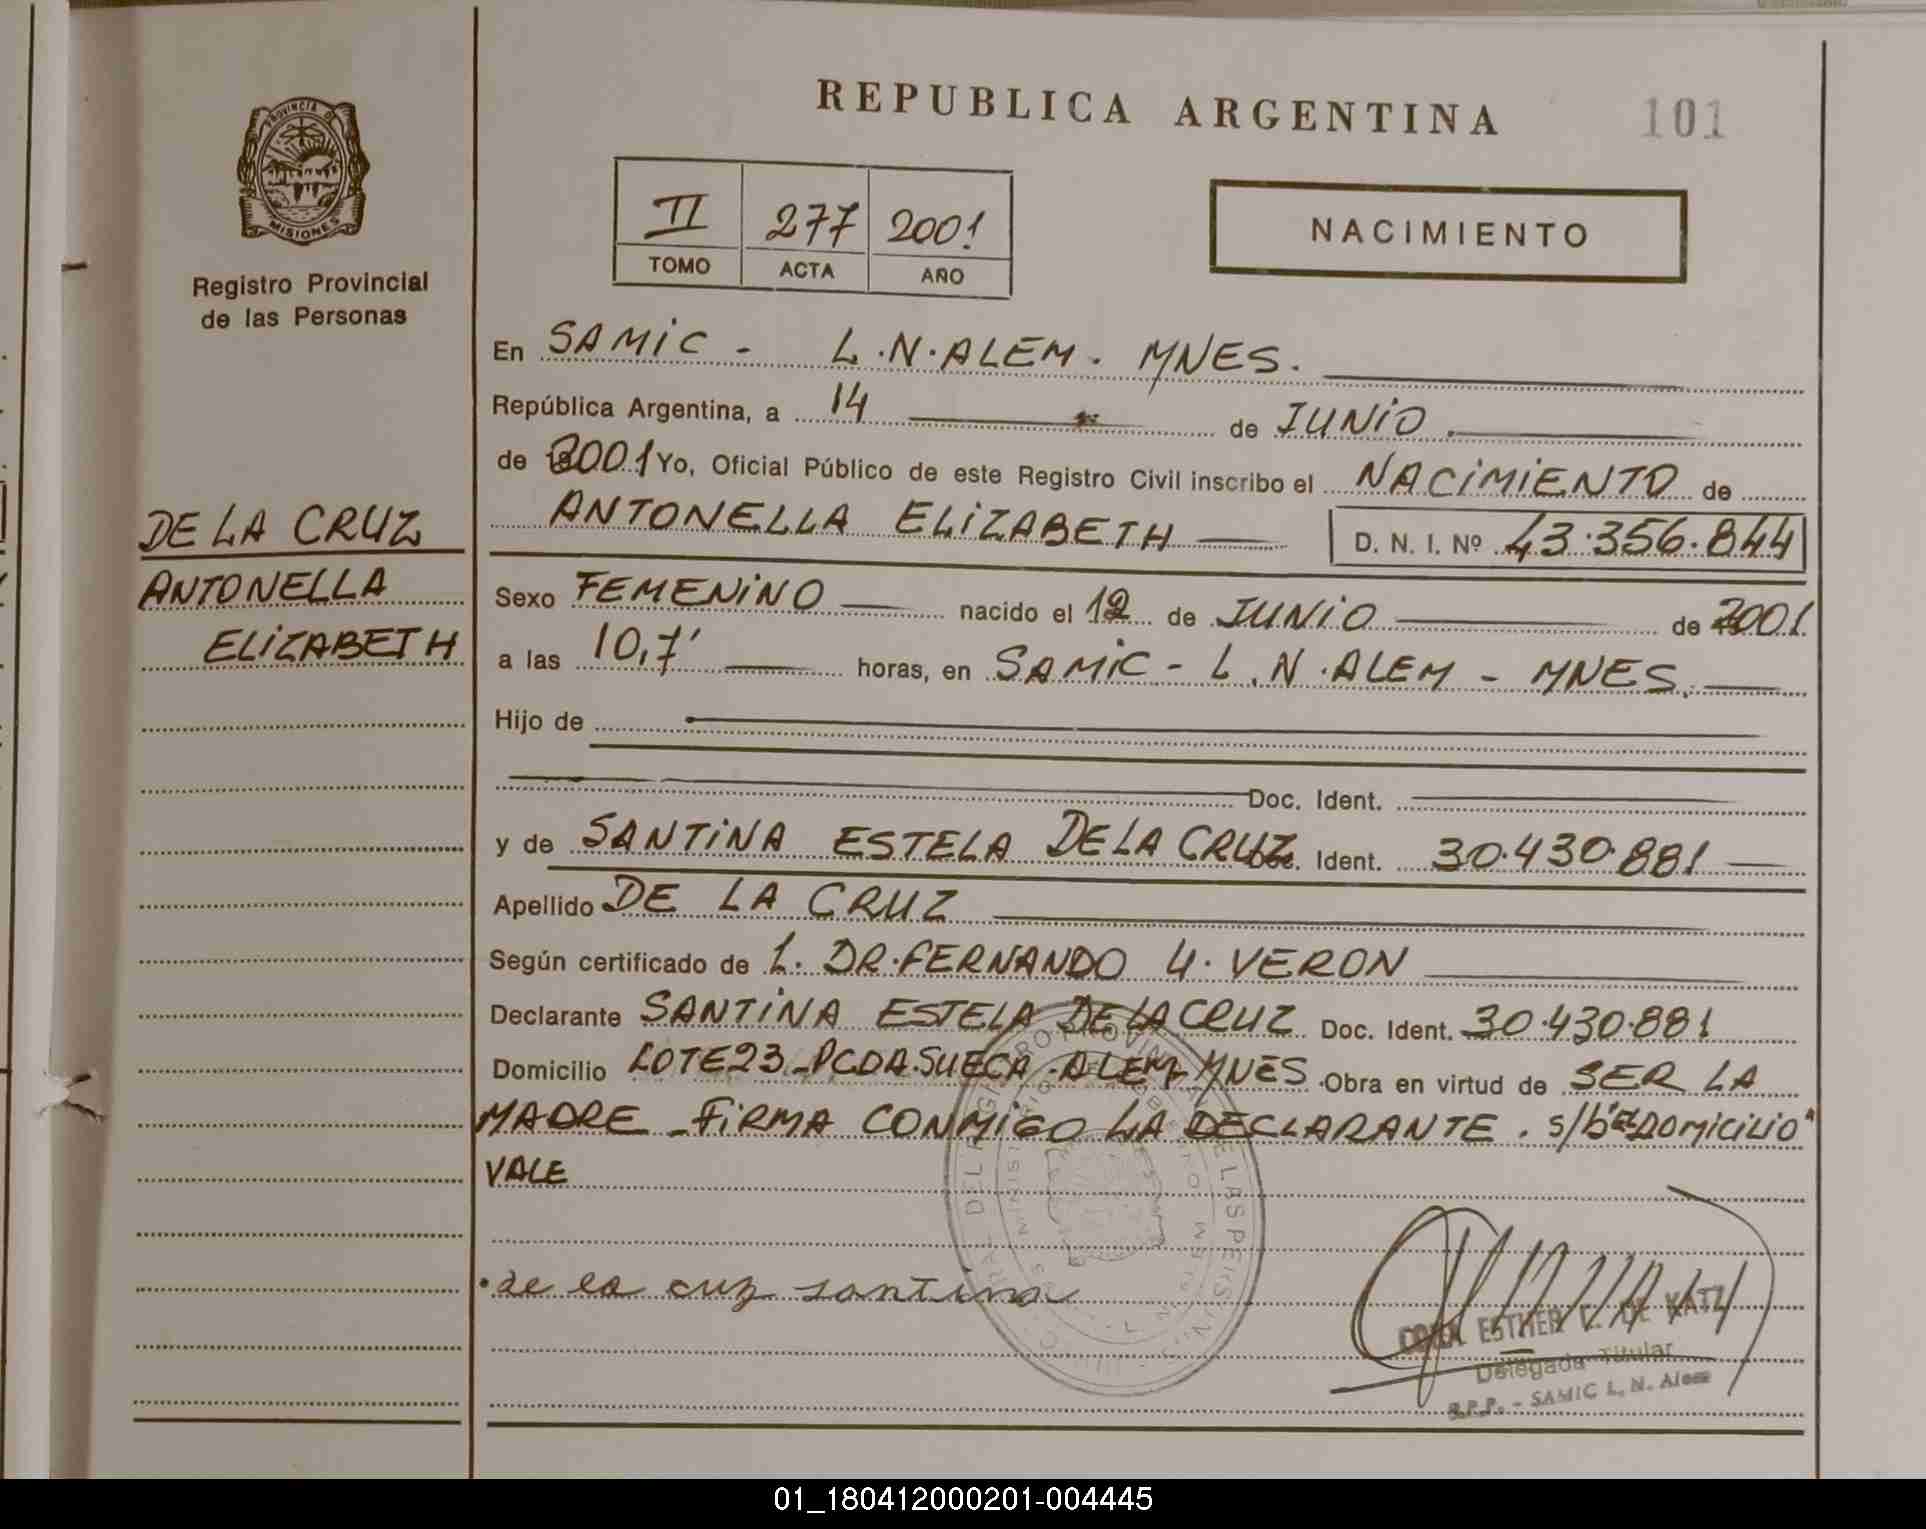 REPUBLICA ARGENTINA
101
PROVINCIA DE
MISIONES
Registro Provincial
de las Personas
II 277 2001
TOMO ACTA AÑO
NACIMIENTO
En SAMIC - L.N.ALEM. MNES.
República Argentina, a 14 de JUNIO
de 2001 Yo, Oficial Público de este Registro Civil inscribo el NACIMIENTO de
ANTONELLA ELIZABETH D. N. I. Nº 43.356.844
DE LA CRUZ
ANTONELLA
ELIZABETH
Sexo FEMENINO nacido el 12 de JUNIO de 2001
a las 10,7' horas, en SAMIC - L.N.ALEM - MNES.
Hijo de
Doc. Ident.
y de SANTINA ESTELA DE LA CRUZ Doc. Ident. 30.430.881
Apellido DE LA CRUZ
Según certificado de L. DR.FERNANDO U. VERON
Declarante SANTINA ESTELA DE LA CRUZ Doc. Ident. 30.430.881
Domicilio LOTE 23 - PCDA.SUECA - ALEM - MNES Obra en virtud de SER LA
MADRE - FIRMA CONMIGO LA DECLARANTE. s/b "El DOMICILIO"
VALE
de la cuz santina
ESTHER DE KATZ
Delegada Titular
R.P.P. - SAMIC L. N. Alem
01_180412000201-004445